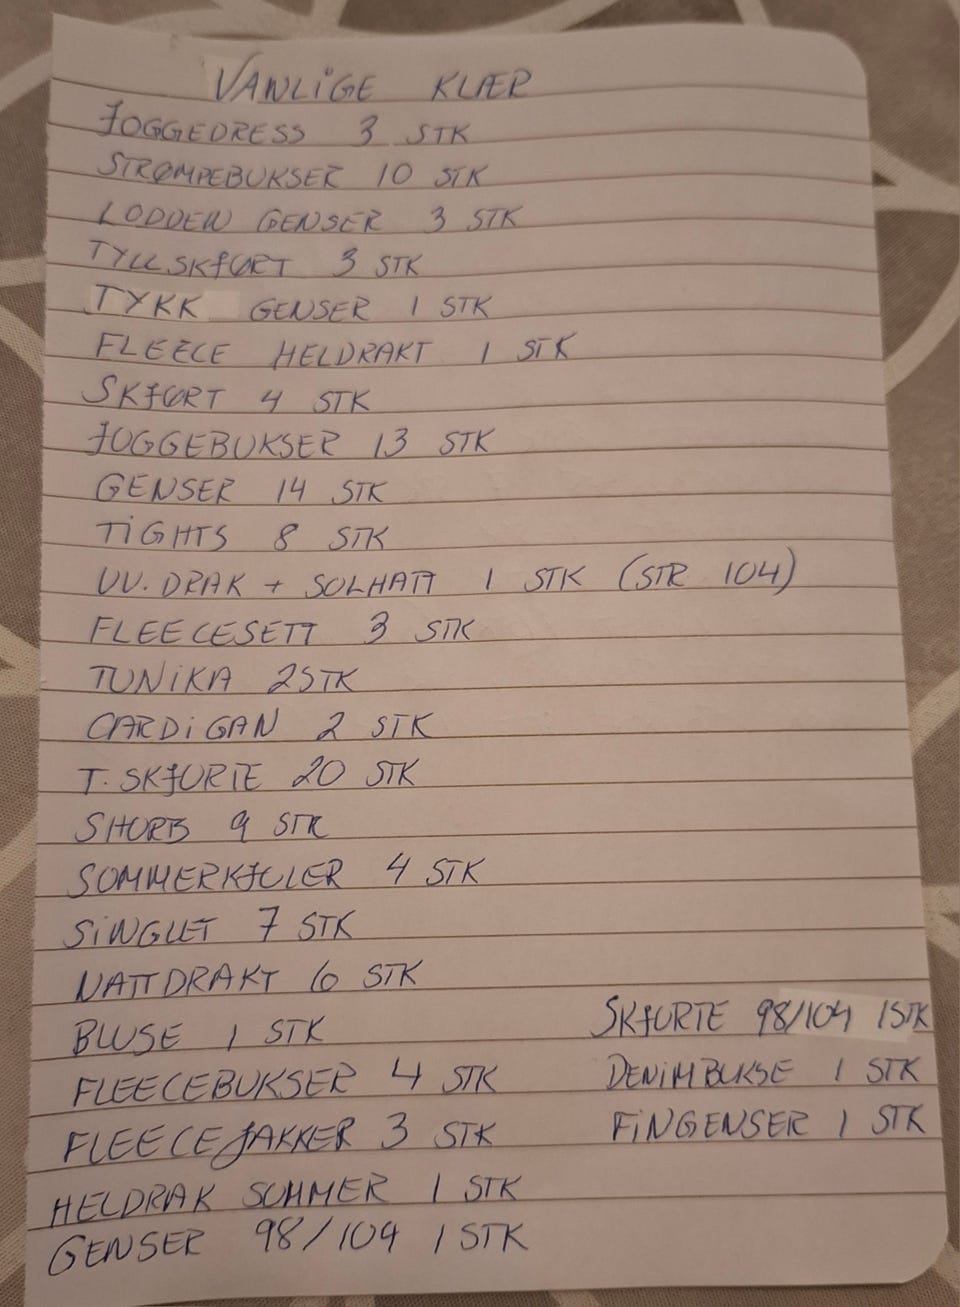 VANLIGE KLÆR
JOGGEDRESS 3 STK
STRØMPEBUKSER 10 STK
LODDEN GENSER 3 STK
TYLLSKJØRT 3 STK
TYKK GENSER 1 STK
FLEECE HELDRAKT 1 STK
SKJØRT 4 STK
JOGGEBUKSER 13 STK
GENSER 14 STK
TIGHTS 8 STK
UV. DRAK + SOLHATT 1 STK (STR 104)
FLEECESETT 3 STK
TUNIKA 2 STK
CARDIGAN 2 STK
T. SKJORTE 20 STK
SHORTS 9 STK
SOMMERKJOLER 4 STK
SINGLET 7 STK
NATTDRAKT 6 STK
BLUSE 1 STK
FLEECEBUKSER 4 STK
FLEECEJAKKER 3 STK
HELDRAK SOMMER 1 STK
GENSER 98/104 1 STK
SKJORTE 98/104 1 STK
DENIMBUKSE 1 STK
FINGENSER 1 STK